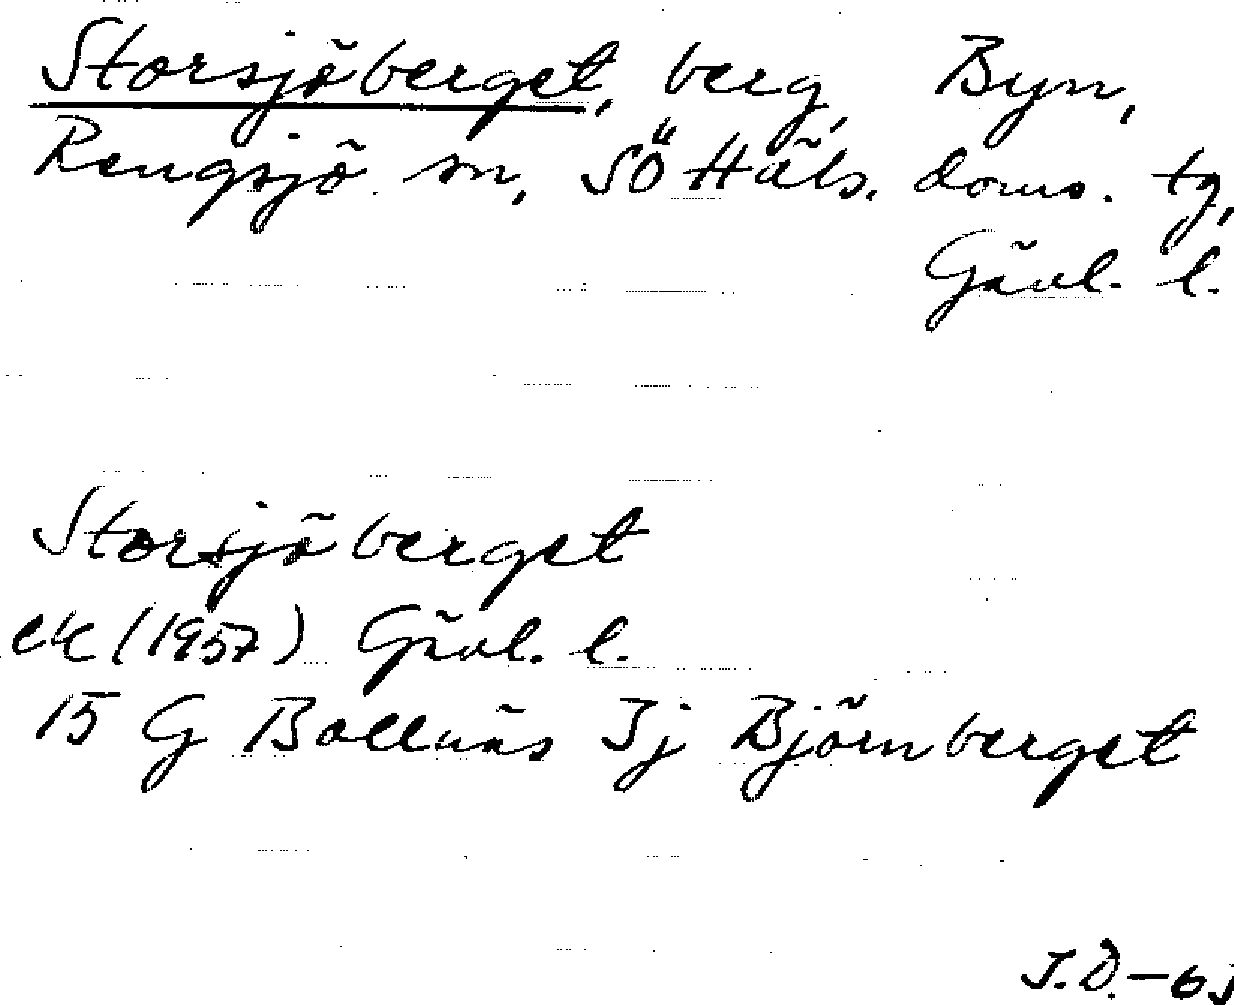 Storsjöberget, berg, Byn,
Rengsjö sn, SÖ Häls. doms. tg,
Gävl. l.
Storsjöberget
ek (1957) Gävl. l.
15 G Bollnäs 3j Björnberget